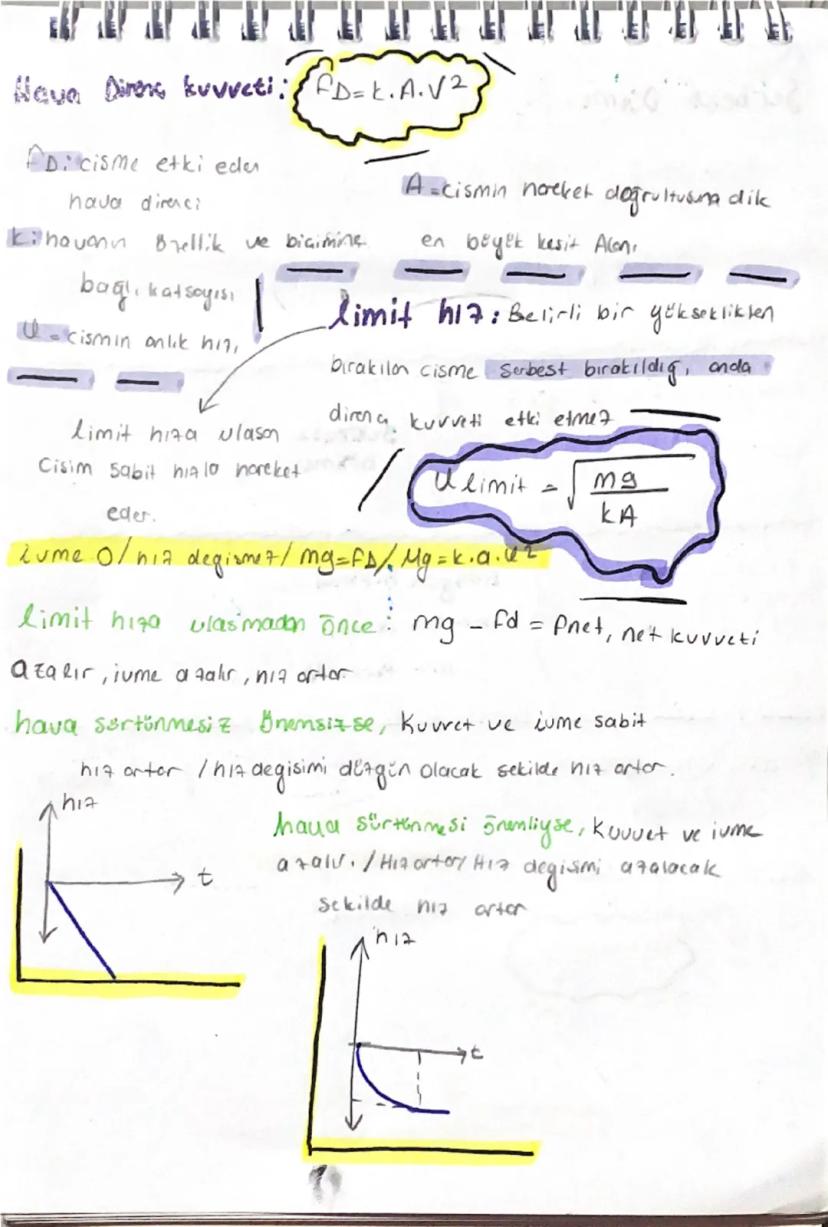 Hava Direnç kuvveti: fD=k.A.V²
fD: cisme etki eden
hava direnci
k: havanın özellik ve biçimine
bağlı katsayısı
υ = cismin anlık hızı
A = cismin hareket doğrultusuna dik
en büyük kesit Alanı
limit hız: Belirli bir yükseklikten
bırakılan cisme serbest bırakıldığı anda
direnç kuvveti etki etmez
limit hıza ulasan
cisim sabit hızla hareket
eder.
υ limit = √mg/kA
ivme 0/hız degismez/mg=fD/Mg=k.a.υ²
limit hıza ulasmadan önce: mg - fd = fnet, net kuvveti
azalır, ivme azalır, hız artar
hava sürtünmesiz önemsizse, kuvvet ve ivme sabit
hız artar /hız degisimi düzgün olacak sekilde hız artar.
hız
t
hava sürtünmesi önemliyse, kuvvet ve ivme
azalır. /Hız artar/Hız degismi azalacak
sekilde hız artar
hız
t